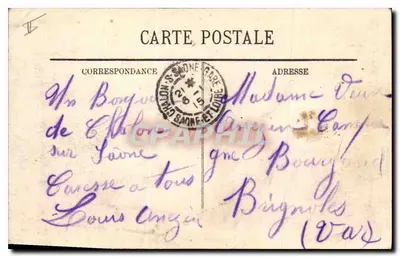 II
CARTE POSTALE
CORRESPONDANCE
ADRESSE
CHALON-S-SAONE-GARE
SAONE-ET-LOIRE
Un Bonjour
de Chalon
sur Saône
Caresse a tous
Louis
Madame
Bourgand
Brignoles
(Var)